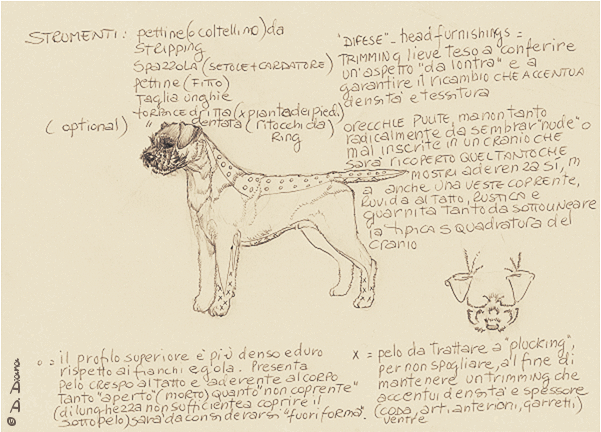 STRUMENTI: pettine (o coltellino) da
STRIPPING
SPAZZOLA (SETOLE+CARDATORE)
pettine (FITTO)
Taglia unghie
FORBICE dRITTA (x piante dei piedi)
(optional) " dentata (ritocchi da)
Ring
"DIFESE" - head furnishings =
TRIMMING lieve teso a conferire
un'aspetto "da lontra" e a
garantire il ricambio CHE ACCENTUA
densità e tessitura
ORECCHIE PULITE, ma non tanto
radicalmente da sembrar "nude" o
mal inscrite in un cranio che
SARA' RICOPERTO QUEL TANTO CHE
MOSTRI aderenza SÍ, m
a anche una VESTE COPRENTE,
RUVIDA AL TATTO, RUSTICA e
guarnita tanto da SOTTOLINEARE
la tipica SQUADRATURA del
CRANIO
o = il profilo superiore è più denso e duro
rispetto ai fianchi e gola. Presenta
pelo CRESPO al TATTO e aderente al CORPO
Tanto "aperto" (MORTO) quanto "non coprente"
(di lunghezza non sufficiente a coprire il
SOTTOpelo) sarà da considerarsi "fuori forma".
x = pelo da TRATTARE a "plucking",
per non spogliare, al fine di
mantenere un trimming che
accentui densità e spessore
(CODA, ART. anteriori, garretti)
ventre
© D. Diana